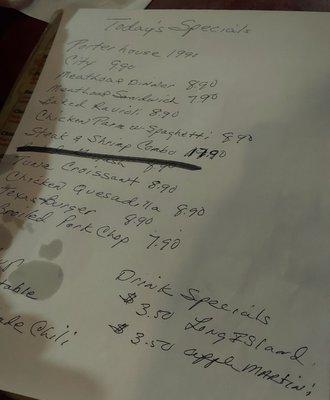 Today's Specials
Porterhouse 19.90
City 9.90
Meatloaf Dinner 8.90
Meatloaf Sandwich 7.90
Baked Ravioli 8.90
Chicken Parm w Spaghetti 8.90
Steak & Shrimp Combo 17.90
Tuna Croissant 8.90
Chicken Quesadilla 8.90
Texas Burger 8.90
Broiled Pork Chop 7.90
Drink Specials
$3.50 Long Island
$3.50 apple MARTINI
table
Chili